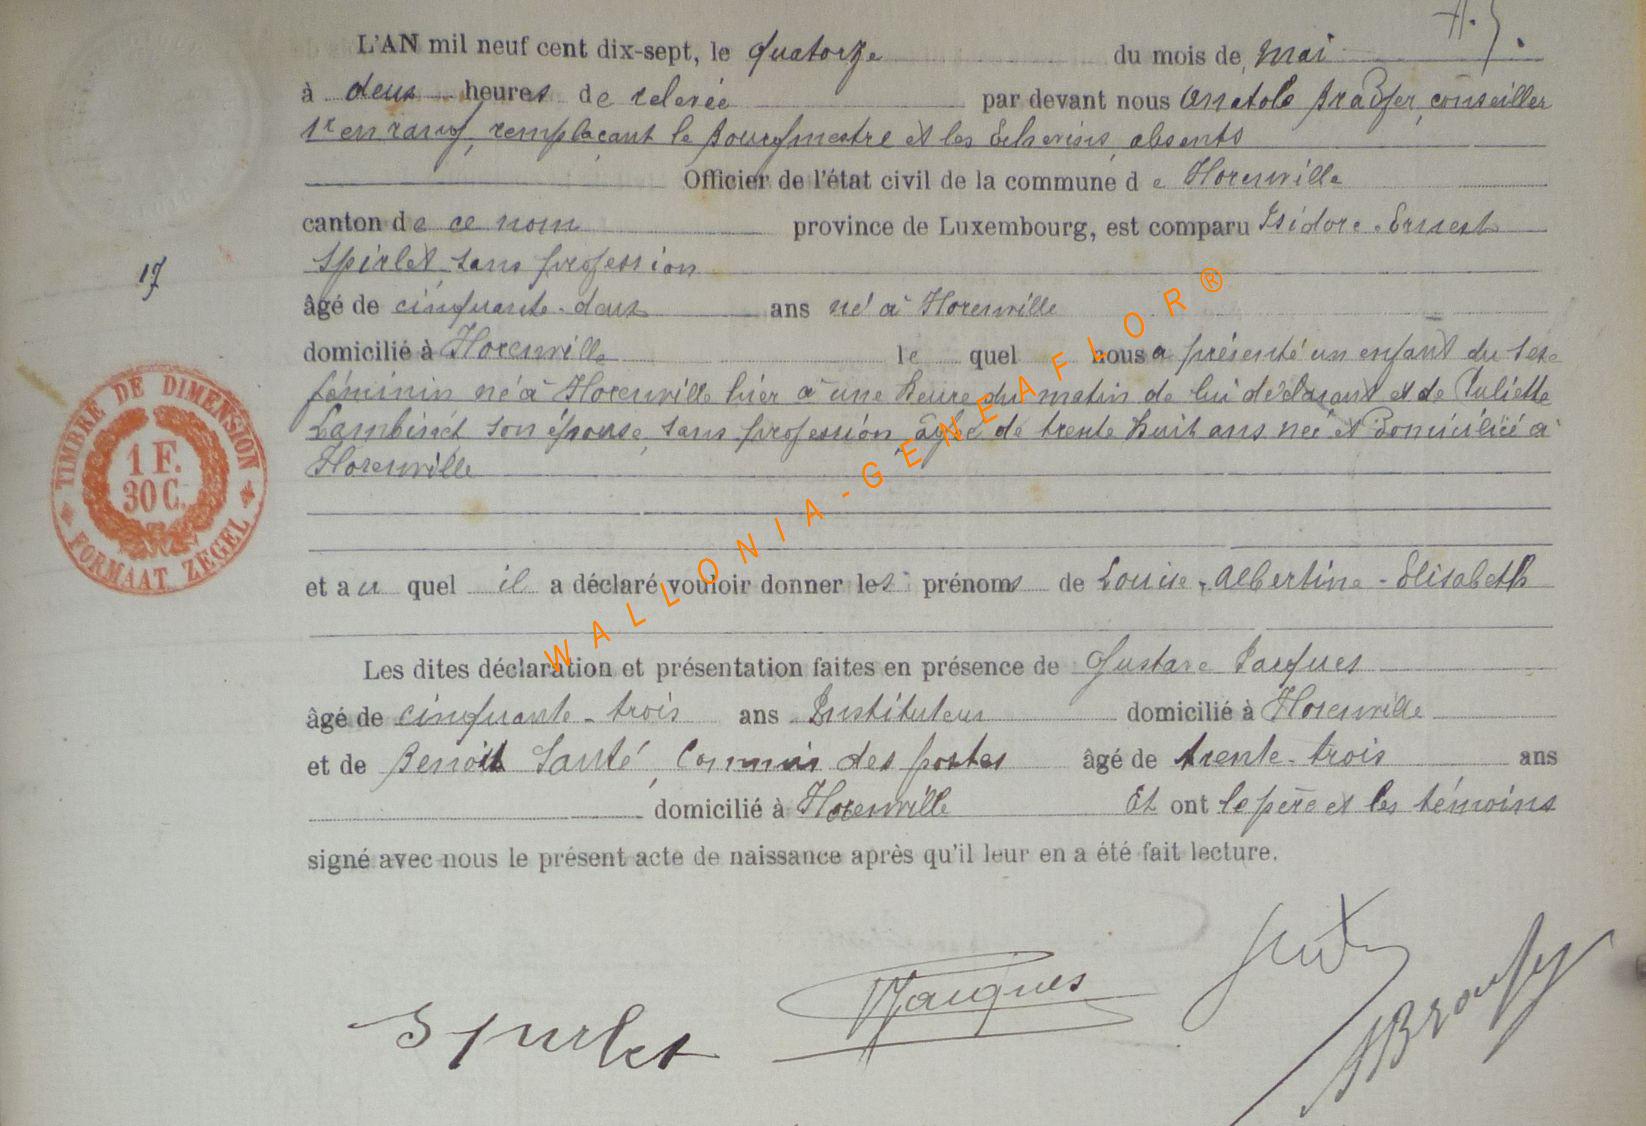 L'AN mil neuf cent dix-sept, le quatorze du mois de mai
à deux heures de relevée par devant nous Anatole conseiller
1r en rang, remplaçant le Bourgmestre et les Echevins, absents
Officier de l'état civil de la commune de Florenville
canton de ce nom province de Luxembourg, est comparu Isidore-Ernest
Spirlet, sans profession
17
âgé de cinquante-deux ans né à Florenville
domicilié à Florenville lequel nous a présenté un enfant du sexe
féminin né à Florenville hier à une heure du matin de lui déclarant et de Juliette
son épouse, sans profession, âgée de trente huit ans née et domiciliée à
Florenville
TIMBRE DE DIMENSION
1 F.
30 C.
FORMAAT ZEGEL
et au quel il a déclaré vouloir donner les prénoms de Louise-Albertine-Elisabeth
Les dites déclaration et présentation faites en présence de Gustave Jacques
âgé de cinquante-trois ans Instituteur domicilié à Florenville
et de Benoit Santé, Commis des postes âgé de trente-trois ans
domicilié à Florenville Et ont le père et les témoins
signé avec nous le présent acte de naissance après qu'il leur en a été fait lecture.
Spirlet Jacques
WALLONIA-GENEAFLOR®